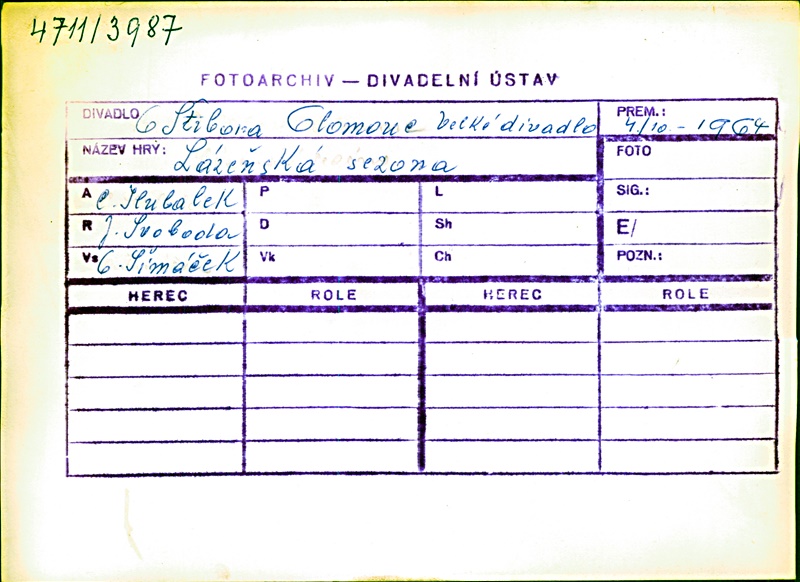 4711/3987
FOTOARCHIV — DIVADELNÍ ÚSTAV
DIVADLO O Stibora Olomouc Velké divadlo
PREM.: 4/10. - 1964
NÁZEV HRY: Lázeňská sezona
FOTO
A C. Hubalek P L SIG.:
R J. Svoboda D Sh E/
Vs O. Šimáček Vk Ch POZN.:
HEREC ROLE HEREC ROLE